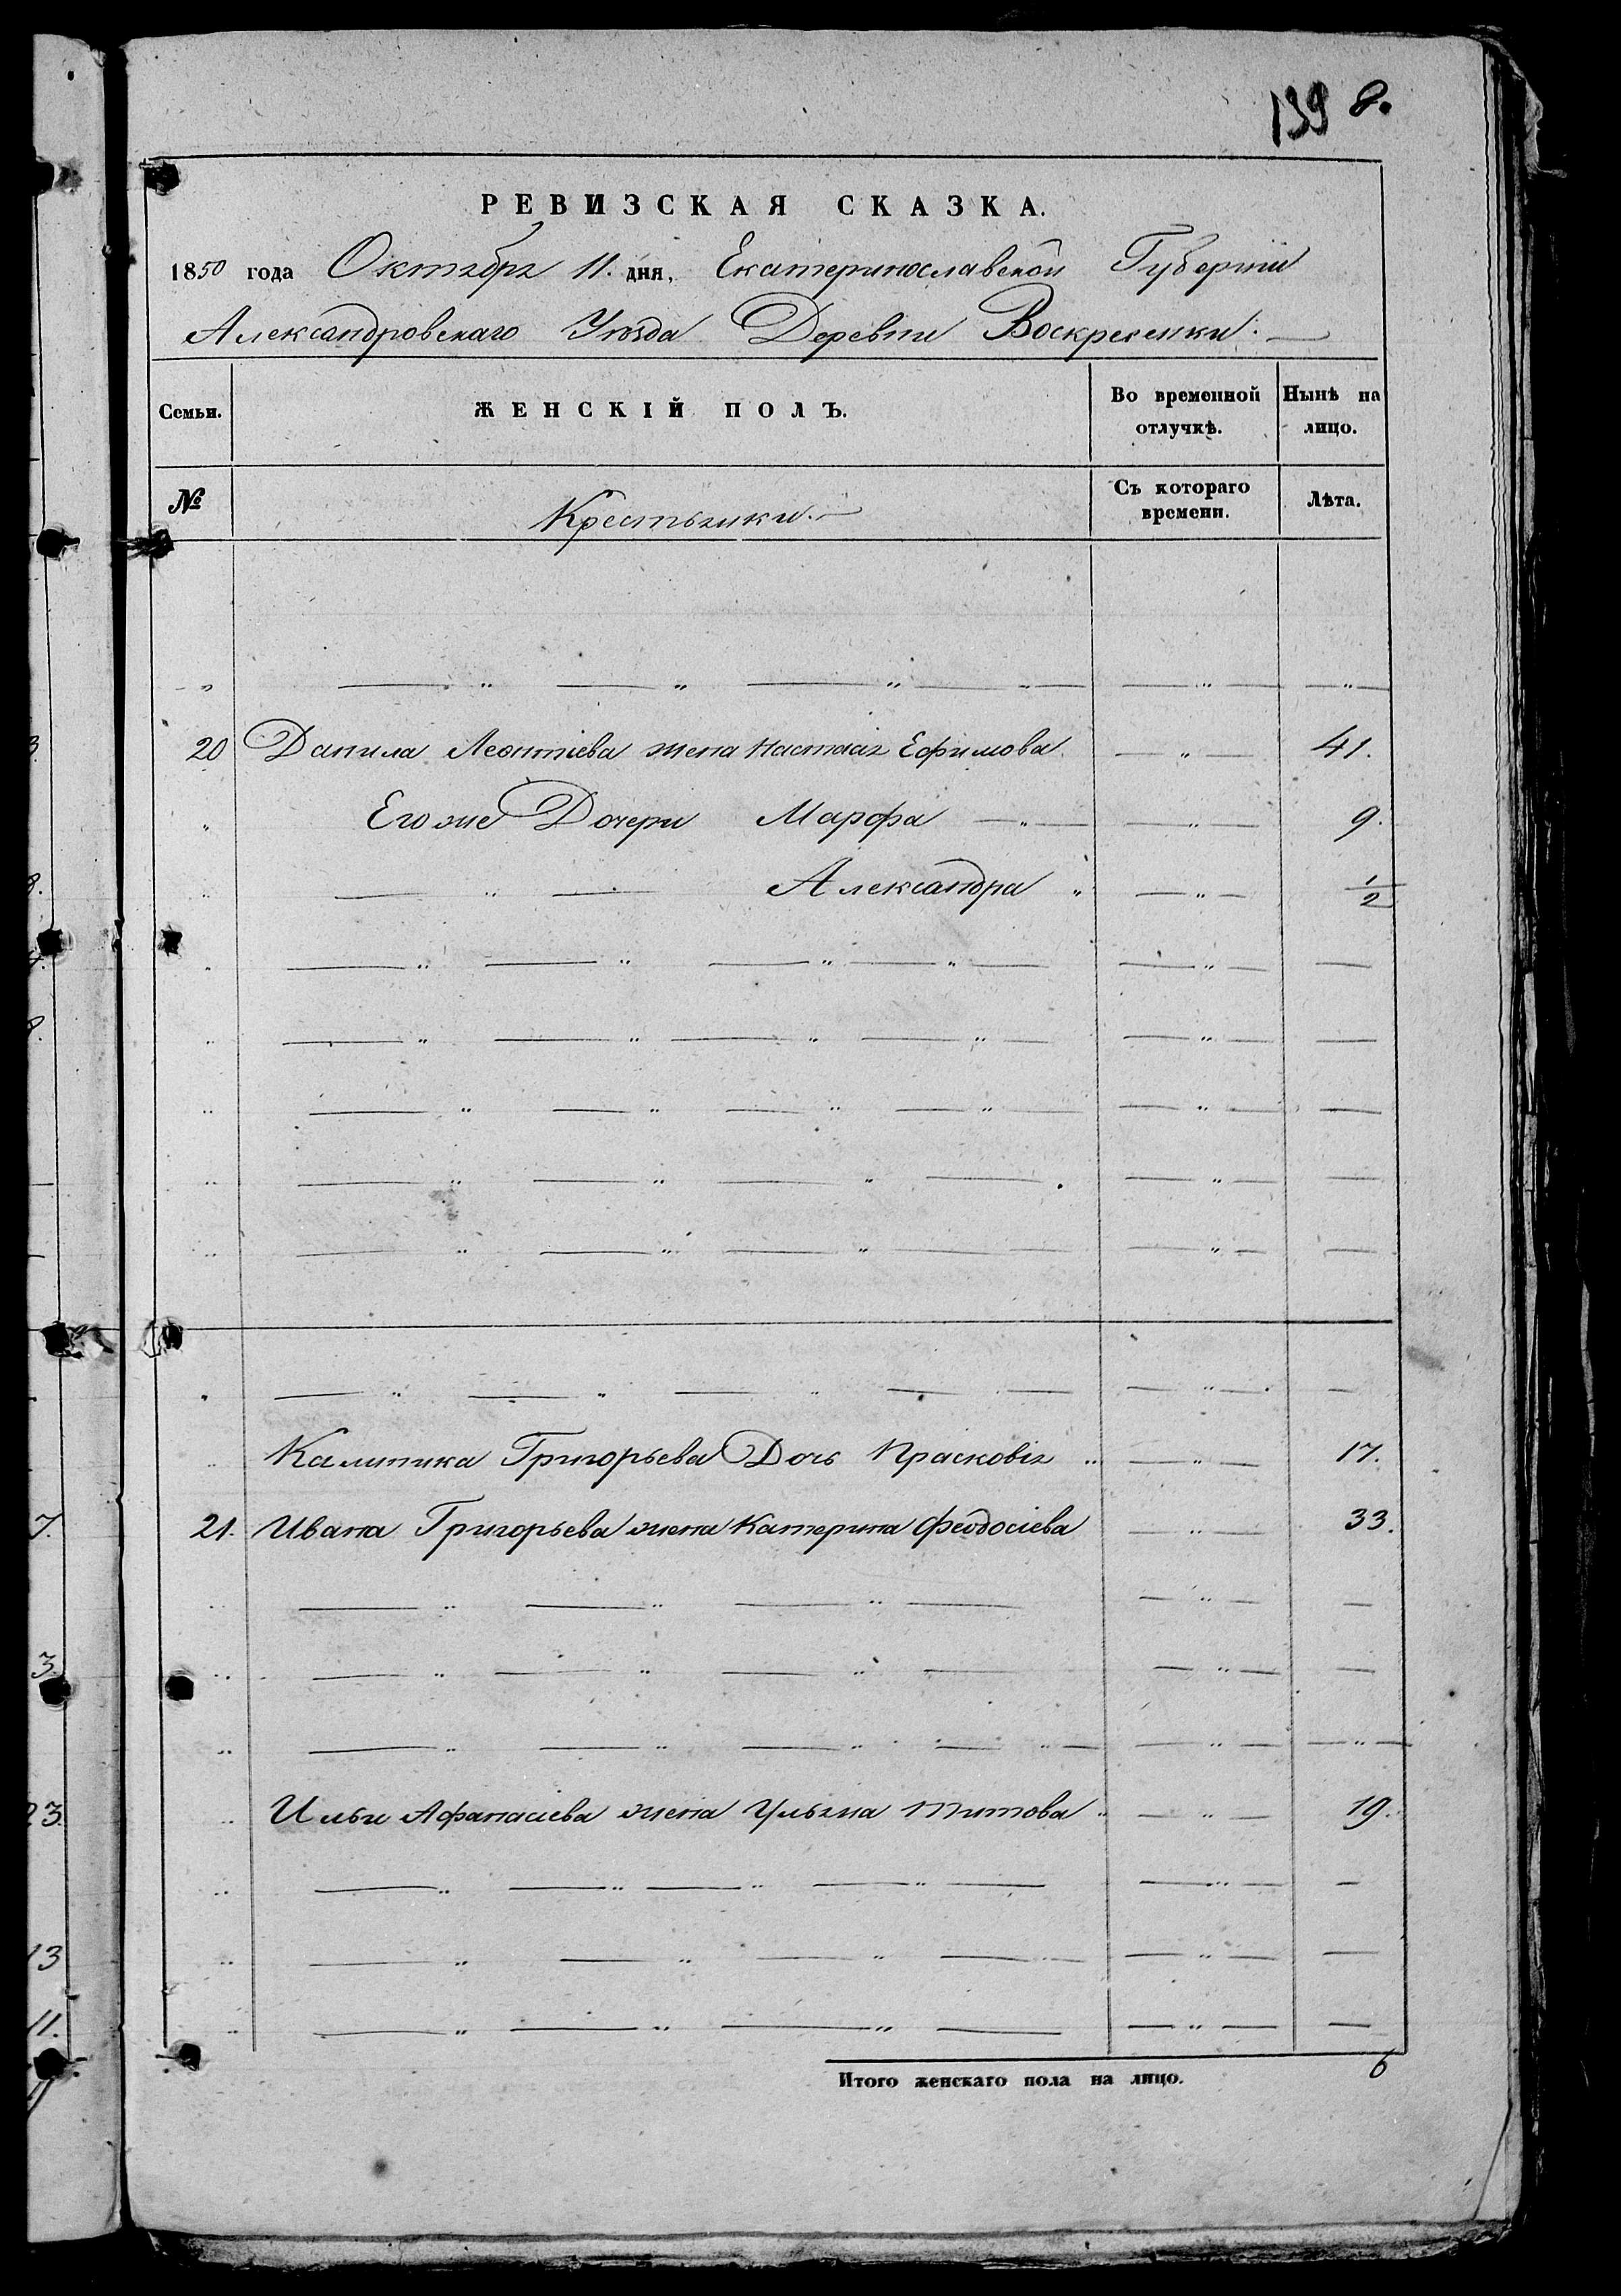 139 8.
РЕВИЗСКАЯ СКАЗКА.
1850 года Октября 11. дня, Екатеринославской Губернии
Александровскаго Уѣзда Деревни Воскресенки.
Семьи. ЖЕНСКІЙ ПОЛЪ. Во временной отлучкѣ. Нынѣ на лицо.
№ Крестьянки. Съ котораго времени. Лѣта.
20 Данила Леонтіева жена Настасія Ефимова — " — 41.
" Его же Дочери Марфа — " — — " — 9.
" — " — Александра " — " — 1/2
Калиника Григорьева Дочь Прасковія " — " — 17.
21. Ивана Григорьева жена Катерина Феодосіева — " — 33.
" Ильи Афанасіева жена Ульяна Титова " — " — 19.
Итого женскаго пола на лицо. 6
3.
8.
4.
8.
7.
3.
23.
13
11.